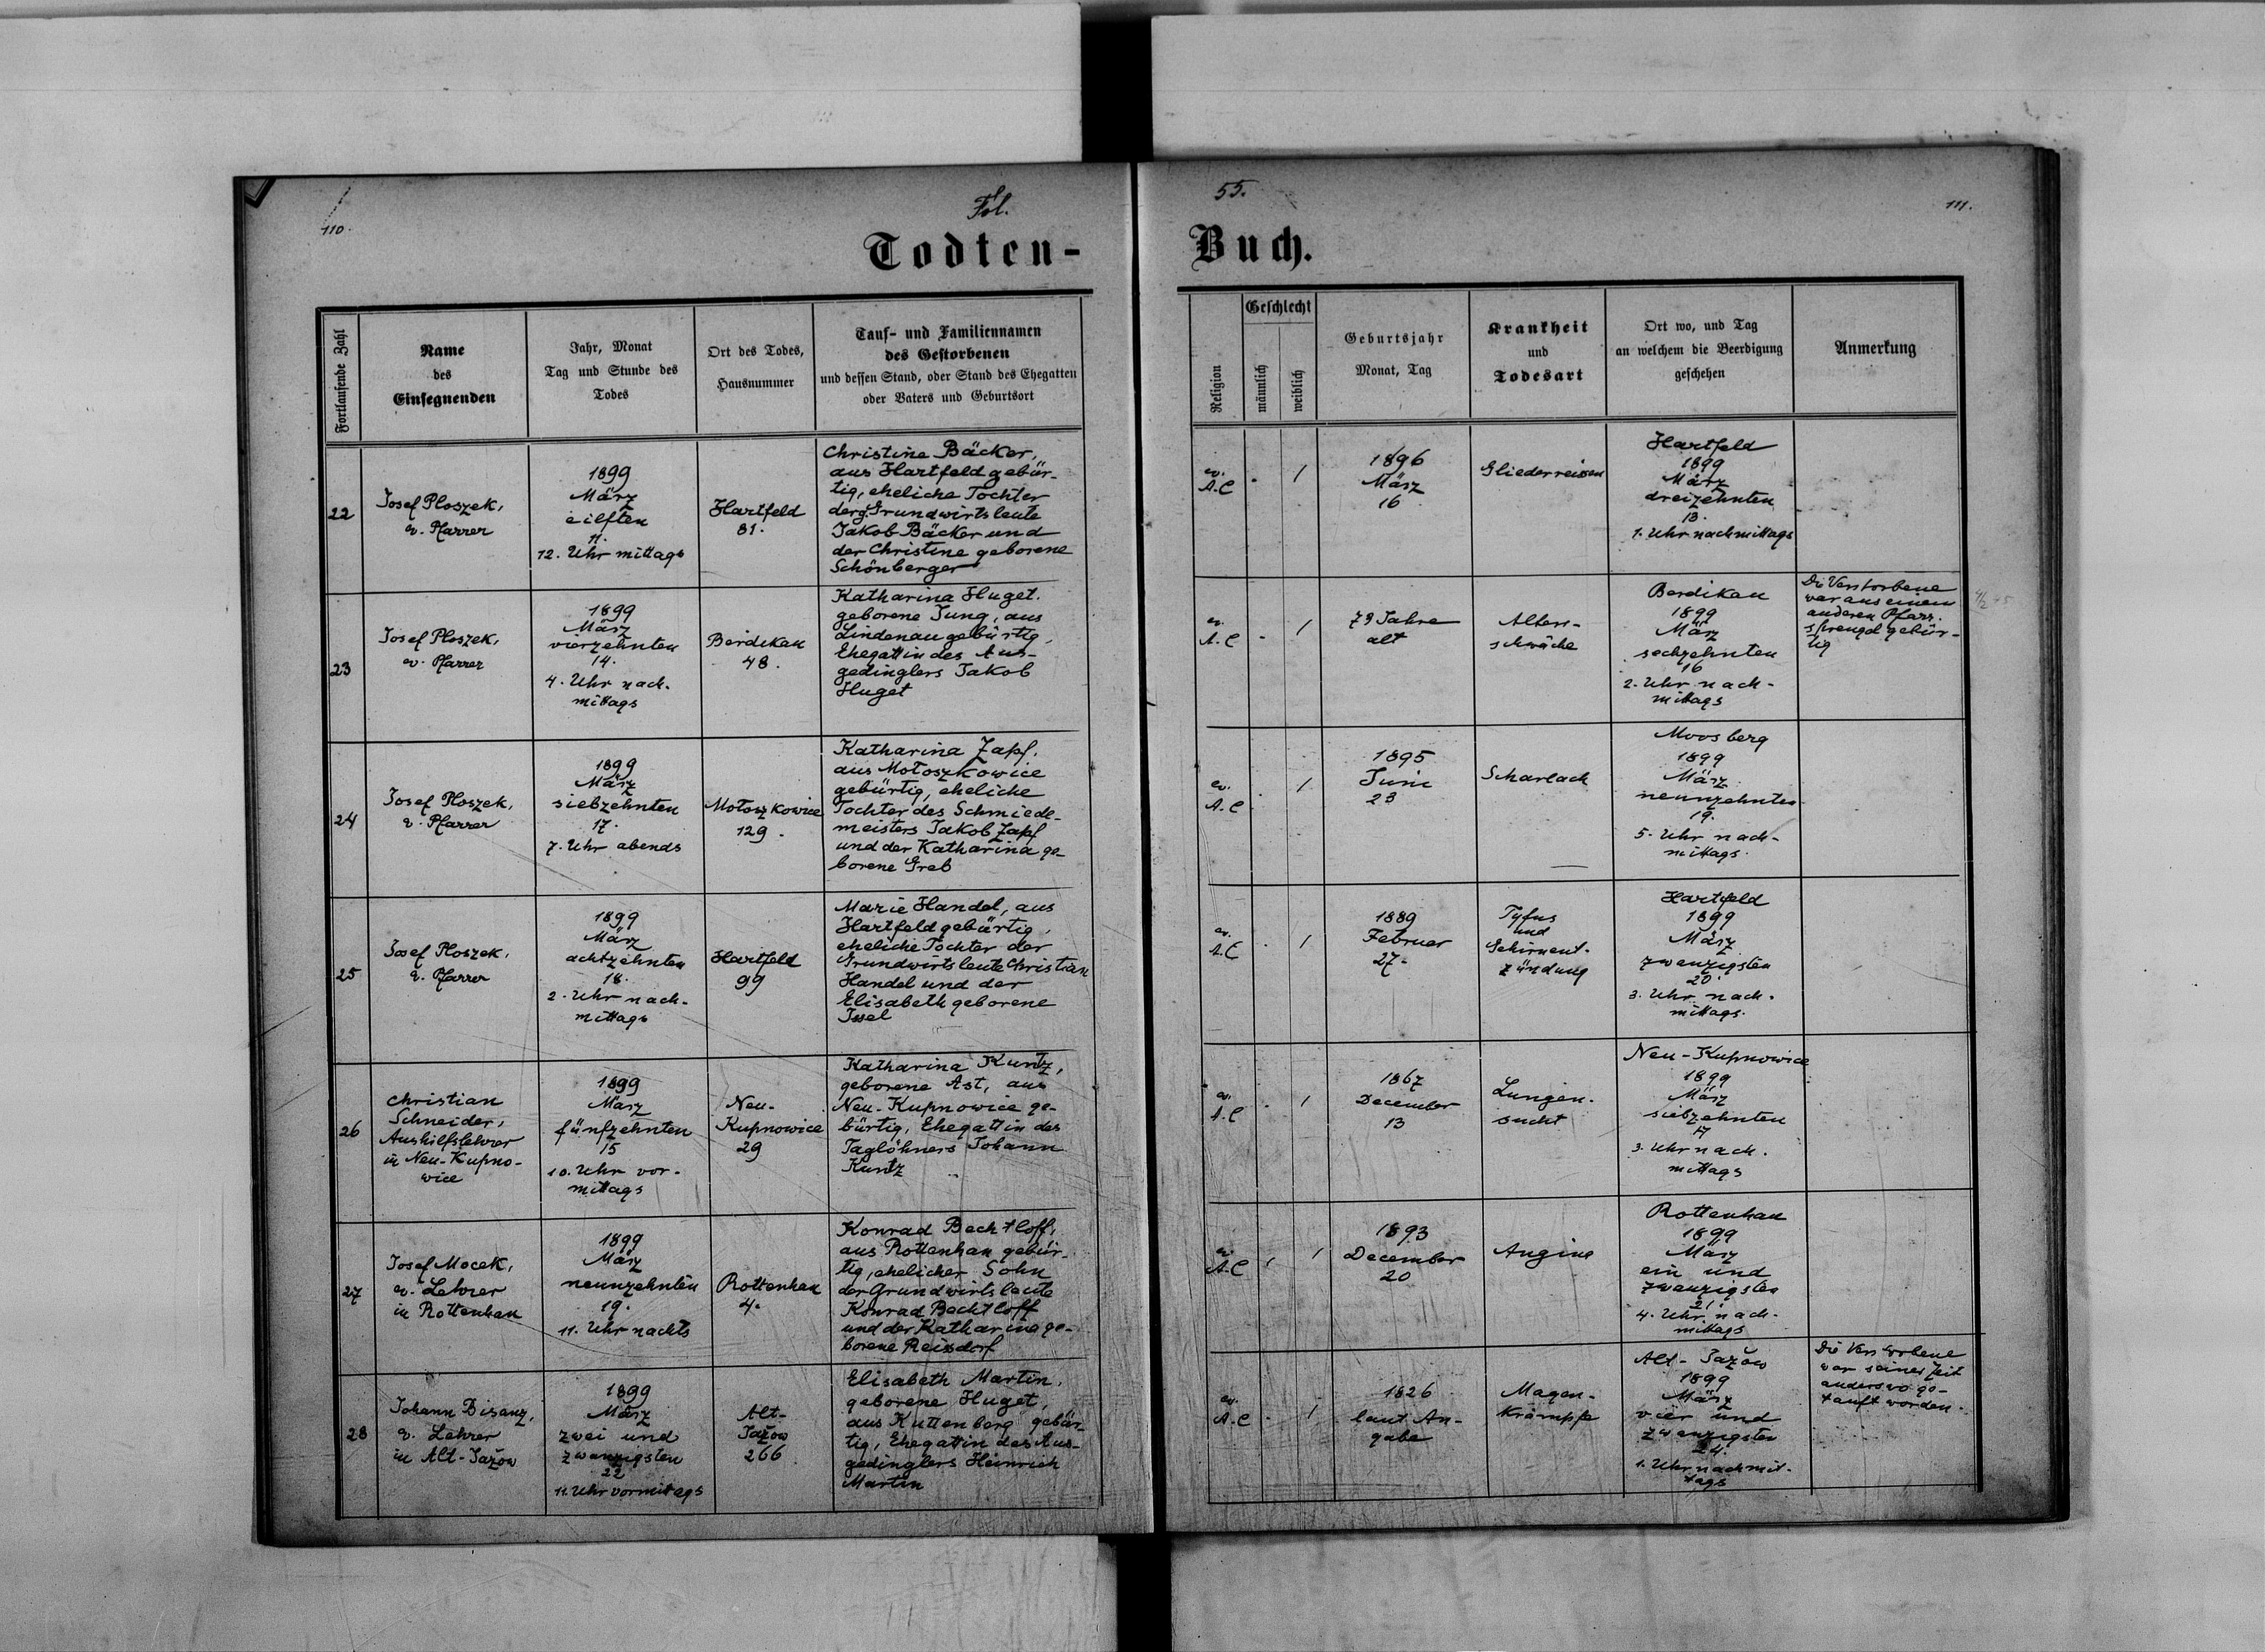 110.
Fol.
55.
111.
Todten-
Buch.
Fortlaufende Zahl
Name
des
Einsegnenden
Jahr, Monat
Tag und Stunde des
Todes
Ort des Todes,
Hausnummer
Tauf- und Familiennamen
des Gestorbenen
und dessen Stand, oder Stand des Ehegatten
oder Vaters und Geburtsort
Religion
Geschlecht
männlich
weiblich
Geburtsjahr
Monat, Tag
Krankheit
und
Todesart
Ort wo, und Tag
an welchem die Beerdigung
geschehen
Anmerkung
22
Josef Ploszek,
ev. Pfarrer
1899
März
eilften
11.
12. Uhr mittags
Hartfeld
81.
Christine Bäcker,
aus Hartfeld gebür-
tig, eheliche Tochter
der Grundwirtsleute
Jakob Bäcker und
der Christine geborene
Schönberger
ev.
A.C
1
1896
März
16
Gliederreissen
Hartfeld
1899
März
dreizehnten
13.
1. Uhr nachmittags
23
Josef Ploszek,
ev. Pfarrer
1899
März
vierzehnten
14.
4. Uhr nach-
mittags
Berdikau
48.
Katharina Huget,
geborene Jung, aus
Lindenau gebürtig,
Ehegattin des Aus-
gedinglers Jakob
Huget
ev.
A.C
1
79 Jahre
alt
Alters-
schwäche
Berdikau
1899
März
sechzehnten
16
2. Uhr nach-
mittags
Die Verstorbene
war aus einem
anderen Pfarr-
sprengel gebür-
tig
24
Josef Ploszek,
ev. Pfarrer
1899
März
siebzehnten
17.
7. Uhr abends
Mołoszkowice
129.
Katharina Zapf,
aus Mołoszkowice
gebürtig, eheliche
Tochter des Schmiede-
meisters Jakob Zapf
und der Katharina ge-
borene Greb
ev.
A.C
1
1895
Juni
23
Scharlach
Moosberg
1899
März
neunzehnten
19.
5. Uhr nach-
mittags.
25
Josef Ploszek,
ev. Pfarrer
1899
März
achtzehnten
18.
2. Uhr nach-
mittags
Hartfeld
99
Marie Handel, aus
Hartfeld gebürtig,
eheliche Tochter der
Grundwirtsleute Christian
Handel und der
Elisabeth geborene
Issel
ev.
A.C
1
1889
Februer
27.
Tyfus
und
Gehirnent-
zündung
Hartfeld
1899
März
zwanzigsten
20.
3. Uhr nach-
mittags.
26
Christian
Schneider,
Aushilfslehrer
in Neu-Kupno-
wice
1899
März
fünfzehnten
15
10. Uhr vor-
mittags
Neu-
Kupnowice
29
Katharina Kuntz,
geborene Ast, aus
Neu-Kupnowice ge-
bürtig, Ehegattin des
Taglöhners Johann
Kuntz
ev.
A.C
1
1867
December
13
Lungen-
sucht
Neu-Kupnowice
1899
März
siebzehnten
17
3. Uhr nach-
mittags
27
Josef Mocek,
ev. Lehrer
in Rottenhan
1899
März
neunzehnten
19.
11. Uhr nachts
Rottenhan
4.
Konrad Bechtloff,
aus Rottenhan gebür-
tig, ehelicher Sohn
der Grundwirtsleute
Konrad Bechtloff
und der Katharina ge-
borene Reissdorf
ev.
A.C
1
1893
December
20
Angina
Rottenhan
1899
März
ein und
zwanzigsten
21.
4. Uhr nach-
mittags
28
Johann Bisanz,
ev. Lehrer
in Alt-Jažow
1899
März
zwei und
zwanzigsten
22
11. Uhr vormittags
Alt-
Jažow
266
Elisabeth Martin,
geborene Huget,
aus Kuttenberg gebür-
tig, Ehegattin des Aus-
gedinglers Heinrich
Martin
ev.
A.C
1
1826
laut An-
gabe
Magen-
krämpfe
Alt-Jažow
1899
März
vier und
zwanzigsten
24.
1. Uhr nachmit-
tags
Die Verstorbene
war seiner Zeit
anderswo ge-
tauft worden.